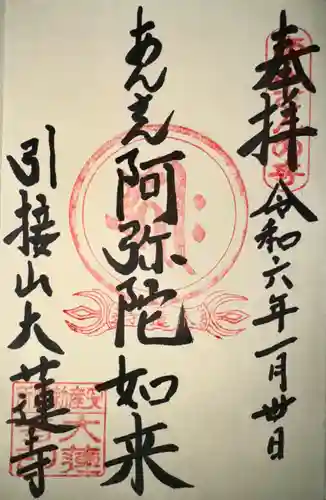 奉拝
令和六年一月卅日
あんざん阿弥陀如来
引接山大蓮寺